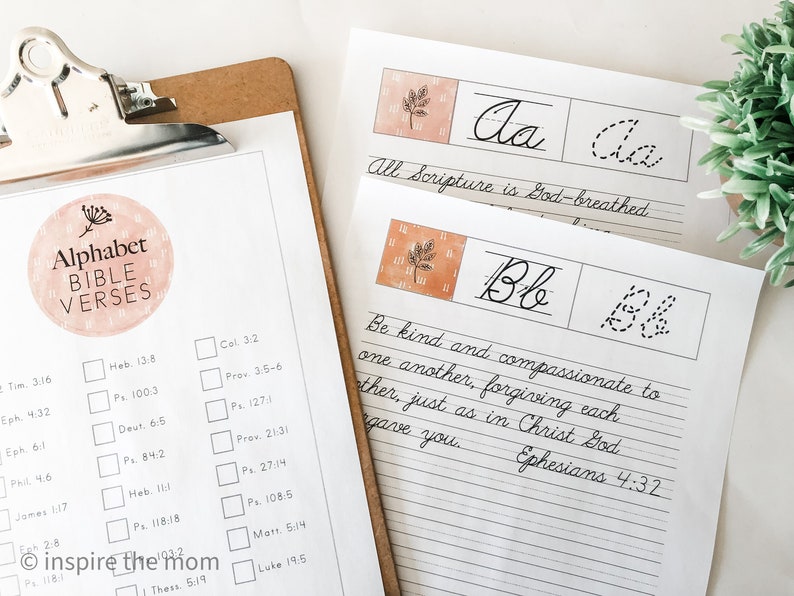 Alphabet
BIBLE
VERSES
2 Tim. 3:16
Eph. 4:32
Eph. 6:1
Phil. 4:6
James 1:17
Eph 2:8
Ps. 118:1
Heb. 13:8
Ps. 100:3
Deut. 6:5
Ps. 84:2
Heb. 11:1
Ps. 118:18
103:2
1 Thess. 5:19
Col. 3:2
Prov. 3:5-6
Ps. 127:1
Prov. 21:31
Ps. 27:14
Ps. 108:5
Matt. 5:14
Luke 19:5
Aa
Aa
All Scripture is God-breathed
Bb
Bb
Be kind and compassionate to
one another, forgiving each
other, just as in Christ God
forgave you.
Ephesians 4:32
© inspire the mom